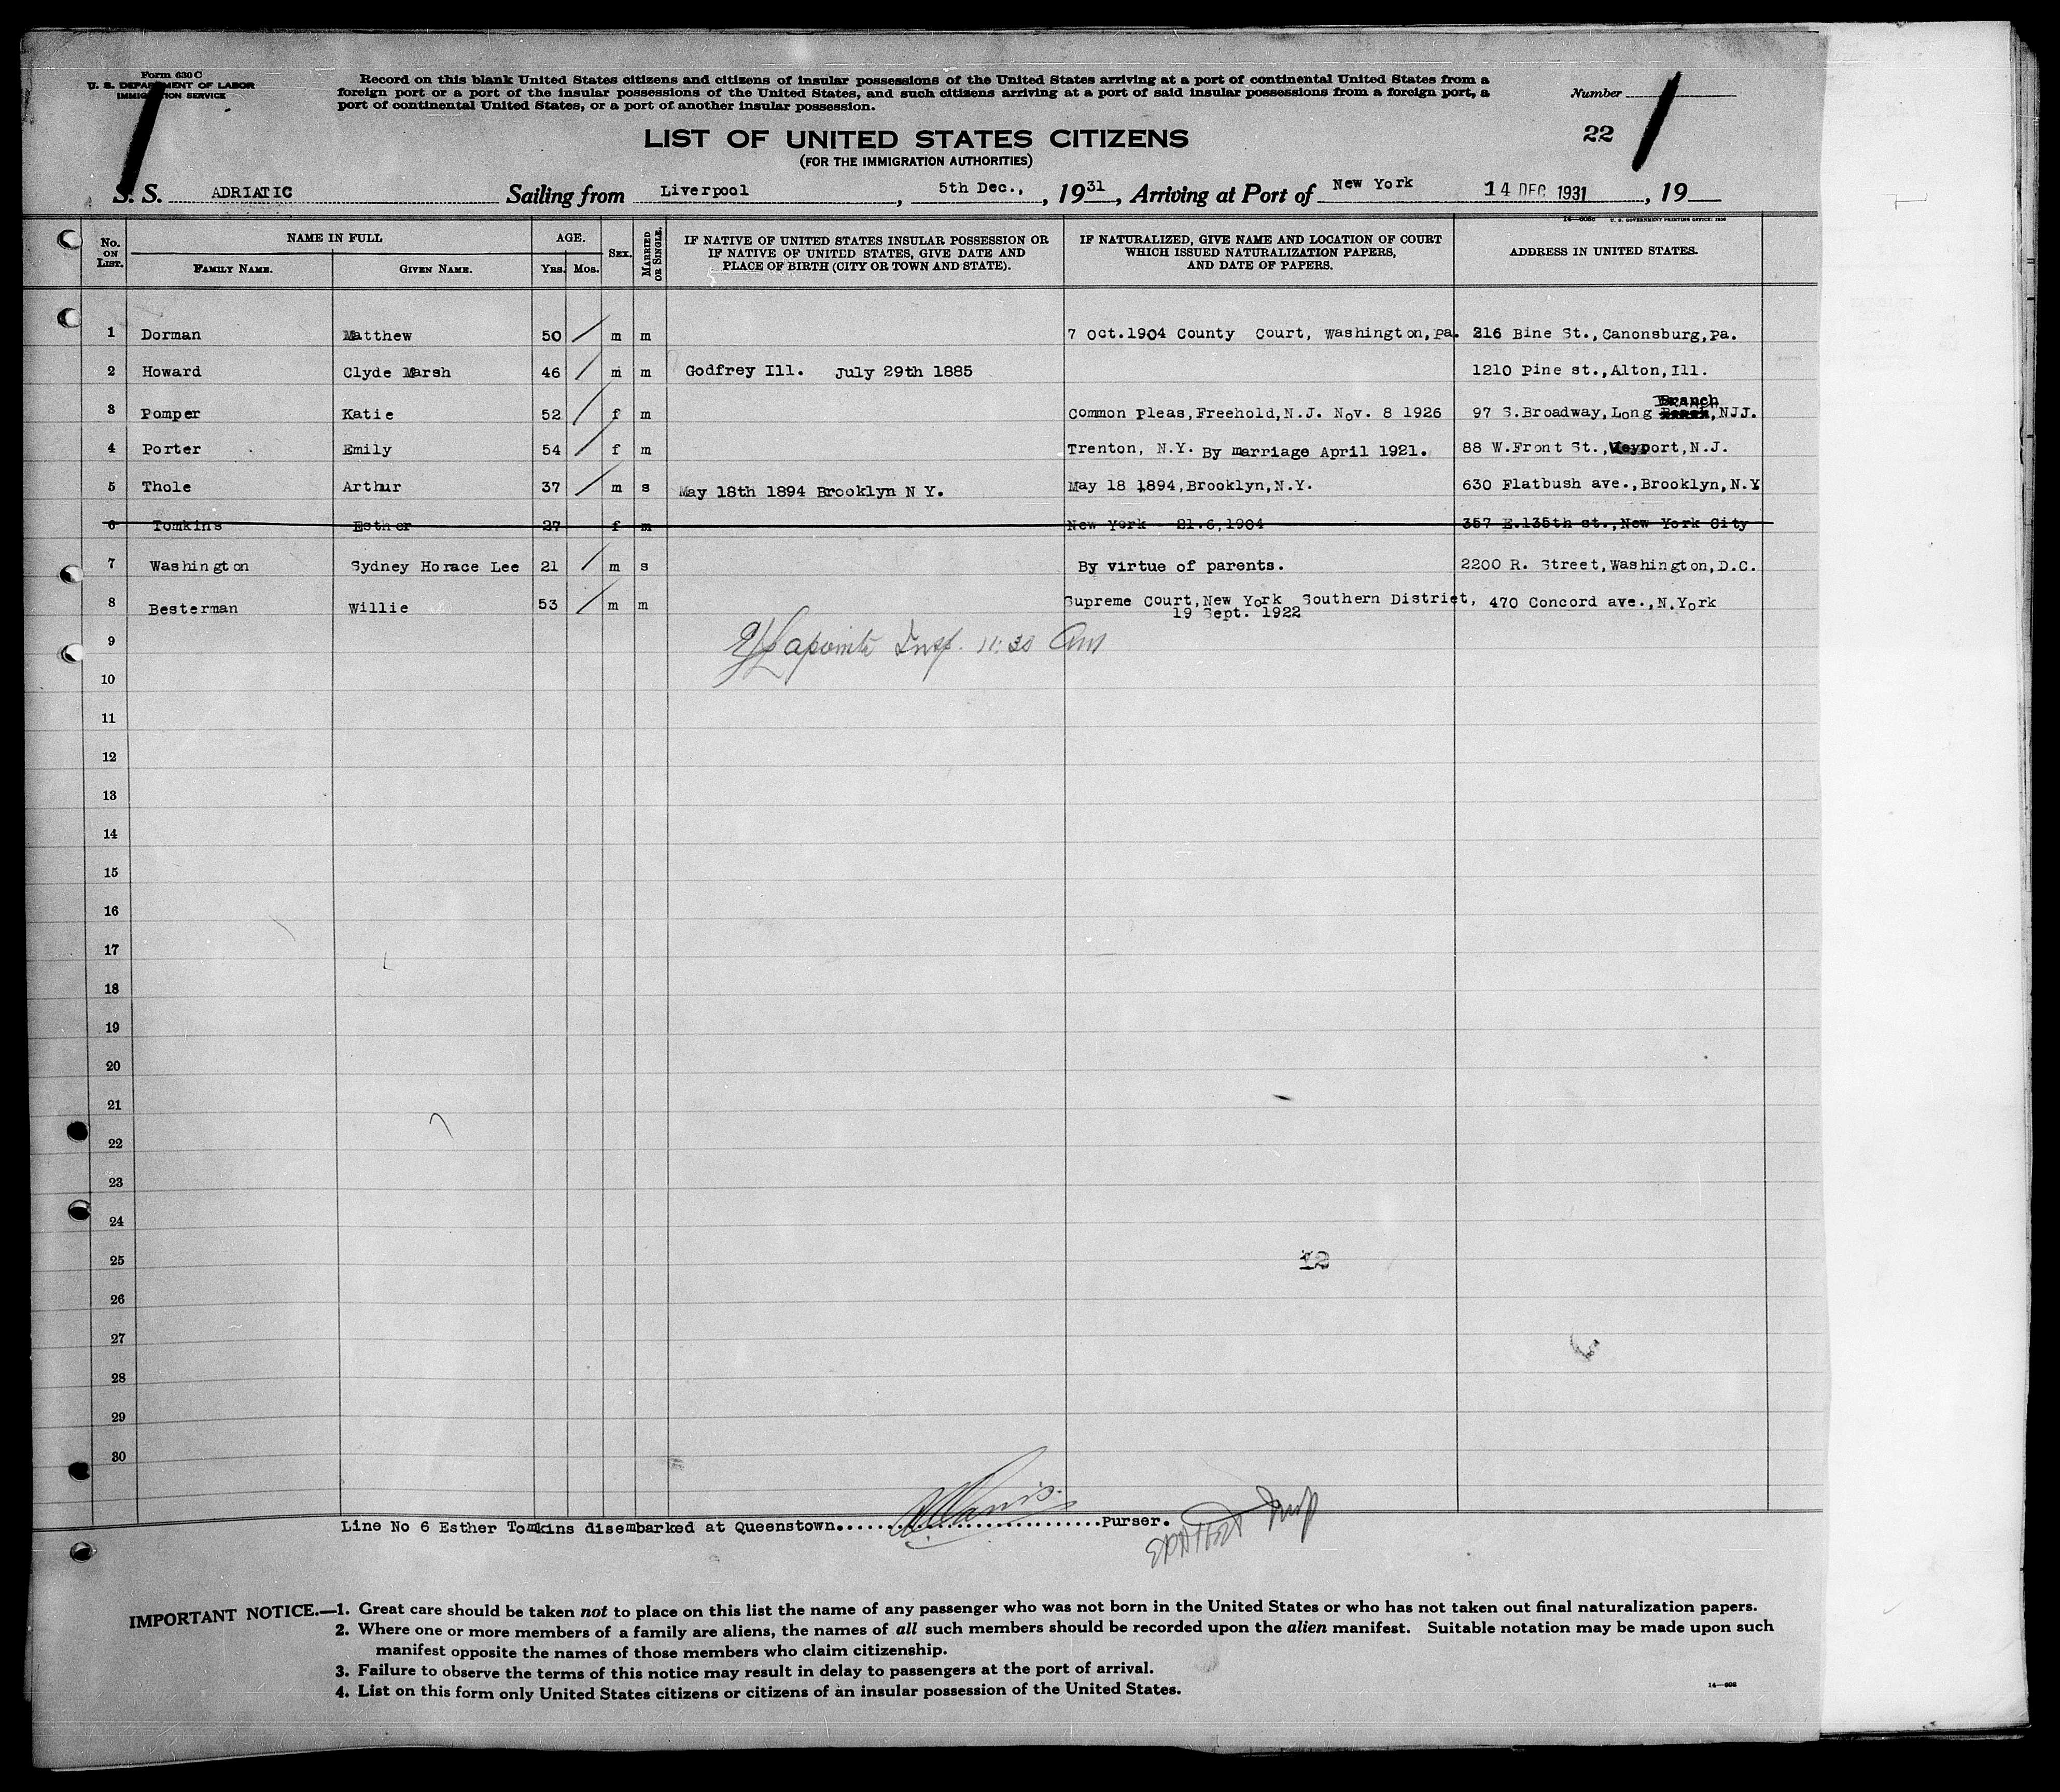 Form 630 C
U. S. DEPARTMENT OF LABOR
IMMIGRATION SERVICE
Record on this blank United States citizens and citizens of insular possessions of the United States arriving at a port of continental United States from a
foreign port or a port of the insular possessions of the United States, and such citizens arriving at a port of said insular possessions from a foreign port, a
port of continental United States, or a port of another insular possession.
Number
22
LIST OF UNITED STATES CITIZENS
(FOR THE IMMIGRATION AUTHORITIES)
S. S. ADRIATIC Sailing from Liverpool, 5th Dec., 1931, Arriving at Port of New York 14 DEC 1931, 19
No. ON LIST.
NAME IN FULL
FAMILY NAME. GIVEN NAME.
AGE.
YRS. MOS.
SEX.
MARRIED OR SINGLE.
IF NATIVE OF UNITED STATES INSULAR POSSESSION OR
IF NATIVE OF UNITED STATES, GIVE DATE AND
PLACE OF BIRTH (CITY OR TOWN AND STATE).
IF NATURALIZED, GIVE NAME AND LOCATION OF COURT
WHICH ISSUED NATURALIZATION PAPERS,
AND DATE OF PAPERS.
ADDRESS IN UNITED STATES.
1 Dorman Matthew 50 m m 7 Oct.1904 County Court, Washington,Pa. 216 Bine St.,Canonsburg,Pa.
2 Howard Clyde Marsh 46 m m Godfrey Ill. July 29th 1885 1210 Pine st.,Alton,Ill.
3 Pomper Katie 52 f m Common Pleas,Freehold,N.J. Nov. 8 1926 97 S.Broadway,Long Branch,NJJ.
4 Porter Emily 54 f m Trenton, N.Y. By marriage April 1921. 88 W.Front St., N.J.
5 Thole Arthur 37 m s May 18th 1894 Brooklyn N Y. May 18 1894,Brooklyn,N.Y. 630 Flatbush ave.,Brooklyn,N.Y
6 Tomkins Esther 27 f m New York - 21.6,1904 357 E.135th st.,New York City
7 Washington Sydney Horace Lee 21 m s By virtue of parents. 2200 R. Street,Washington,D.C.
8 Besterman Willie 53 m m Supreme Court,New York Southern District, 470 Concord ave.,N.York
19 Sept. 1922
9 Lapointe Insp. 11:30 Am
10
11
12
13
14
15
16
17
18
19
20
21
22
23
24
25 12
26
27
28
29
30
Line No 6 Esther Tomkins disembarked at Queenstown..............................Purser.
Insp
IMPORTANT NOTICE.—1. Great care should be taken not to place on this list the name of any passenger who was not born in the United States or who has not taken out final naturalization papers.
2. Where one or more members of a family are aliens, the names of all such members should be recorded upon the alien manifest. Suitable notation may be made upon such
manifest opposite the names of those members who claim citizenship.
3. Failure to observe the terms of this notice may result in delay to passengers at the port of arrival.
4. List on this form only United States citizens or citizens of an insular possession of the United States.